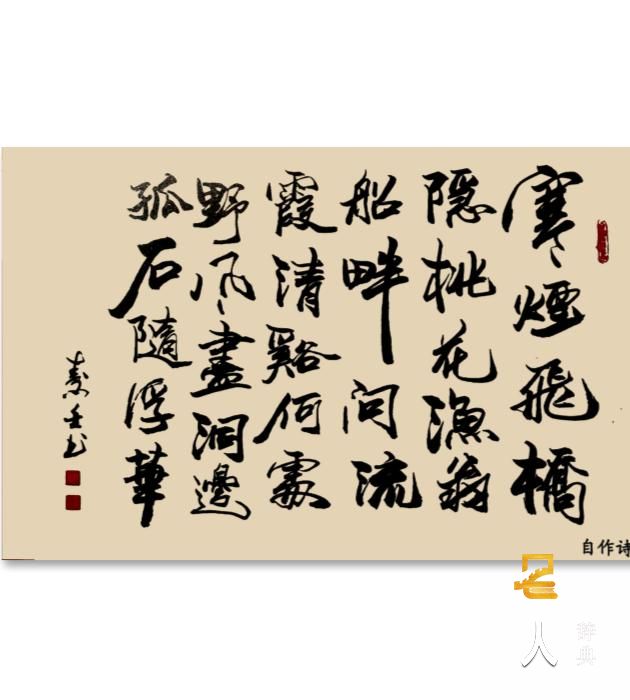 寒煙飛橋
隱桃花漁翁
船畔问流
霞清谿何處
野风盡洞邊
孤石隨浮華
书
自作诗
名人
辞典